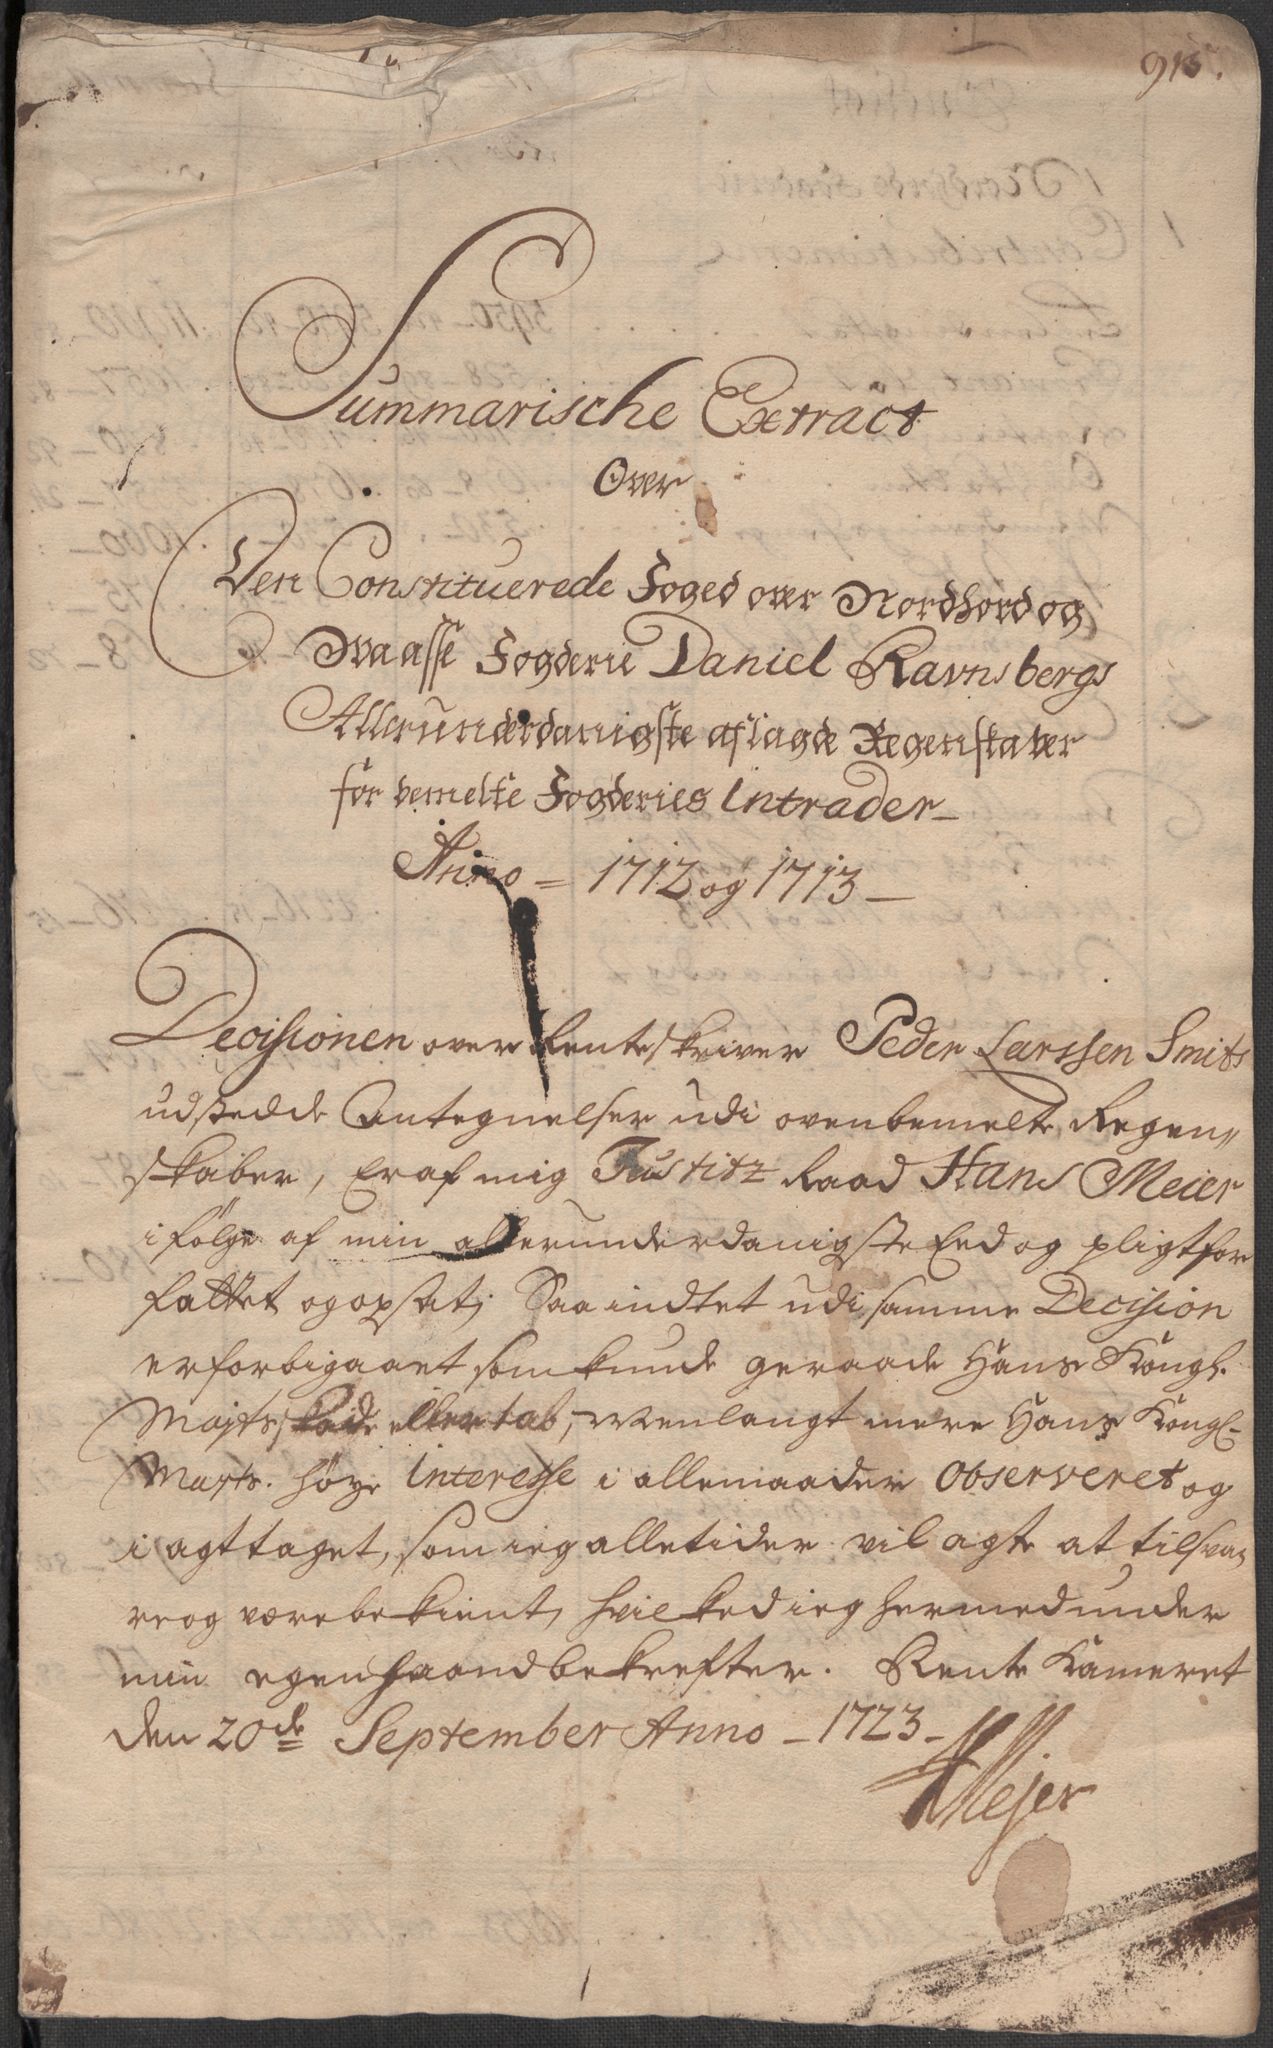 915.
Summarische Extract
Over
Den Constituerede Foged over Nordhord og
Waasse Fogderie Daniel Ravnsbergs
Allerunderdanigste aflagde Regenskaber
for bemelte Fogderies Intrader
Anno = 1712 og 1713 –
Decisionen over Renteskriver Peder Larssen Smits
udstedde Antegnelser udi ovenbemelte Regen„
skaber, Er af mig Justitz Raad Hans Meier
i følge af min allerunderdanigste Eed og pligt for
fattet og opsat; Saa indtet udi samme Decision
er forbigaaet som kunde geraade Hans Kongl.
Majts skade eller tab, Men langt mere Hans Kongl.
Majts. høye Interesse i alle maader Observeret og
i agt taget, som ieg alletider vil agte at tilsva„
re og være bekient, hvilked ieg hermed under
min egen haand bekrefter. Rente Kameret
den 20de September Anno – 1723 –
HMejer
1